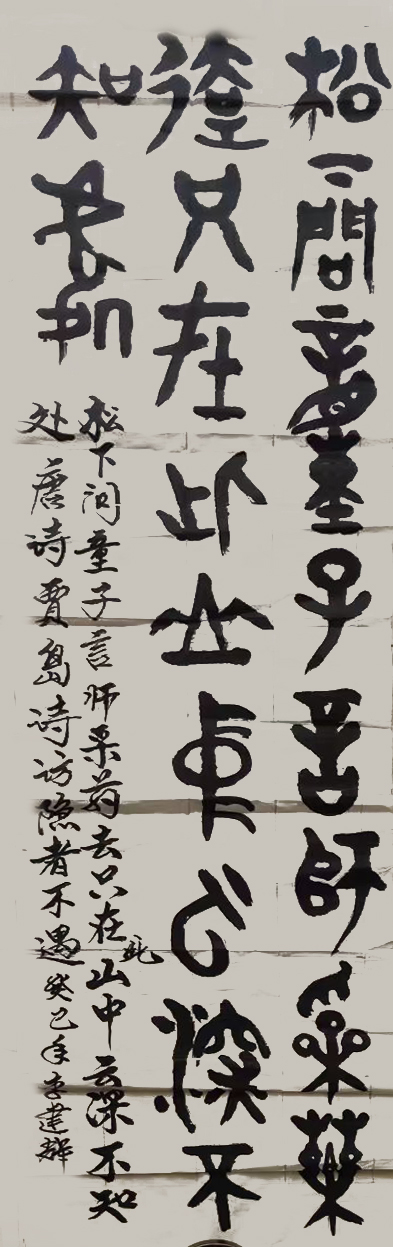 松下问童子言师采药
去只在此山中云深不
知处
松下问童子言师采药去只在此山中云深不知
处唐诗贾岛诗访隐者不遇癸巳年李建辉